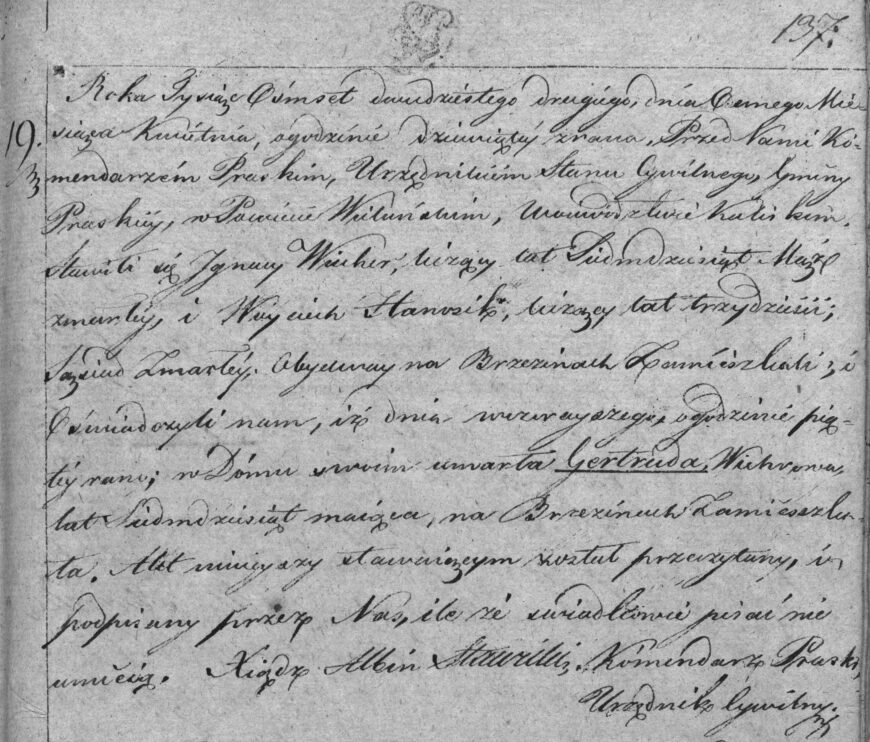 137.
Roku Tysiąc Ośmset dwudziestego drugiego, dnia Osmego Mie-
19. siąca Kwietnia, ogodzinie dziewiątéy zrana, Przed Nami Ko-
mendarzem Praskim, Urzędnikiem Stanu Cywilnego, Gminy
Praskiéy, w Powiecie Wieluńskim, Woiewództwie Kaliskim.
Stawili się Ignacy Wicher, liczący lat Siedmdziesiąt Mąż
zmarłéy, i Woyciech Stanosik, liczący lat trzydzieści;
Sąsiad Zmarłéy. Obydway na Brzezinach Zamieszkali; i
Oświadczyli nam, iż dnia wczorayszego, ogodzinie pią-
téy rano; w Domu swoim umarła Gertruda, Wichrowa,
lat Siedmdziesiąt maiąca, na Brzezinach Zamieszka-
ła. Akt ninieyszy stawaiącym został przeczytany, i
podpisany przez Nas, ile że swiadkowie pisać nie
umieią. Xiądz Albin Komendarz Praski,
Urzędnik Cywilny